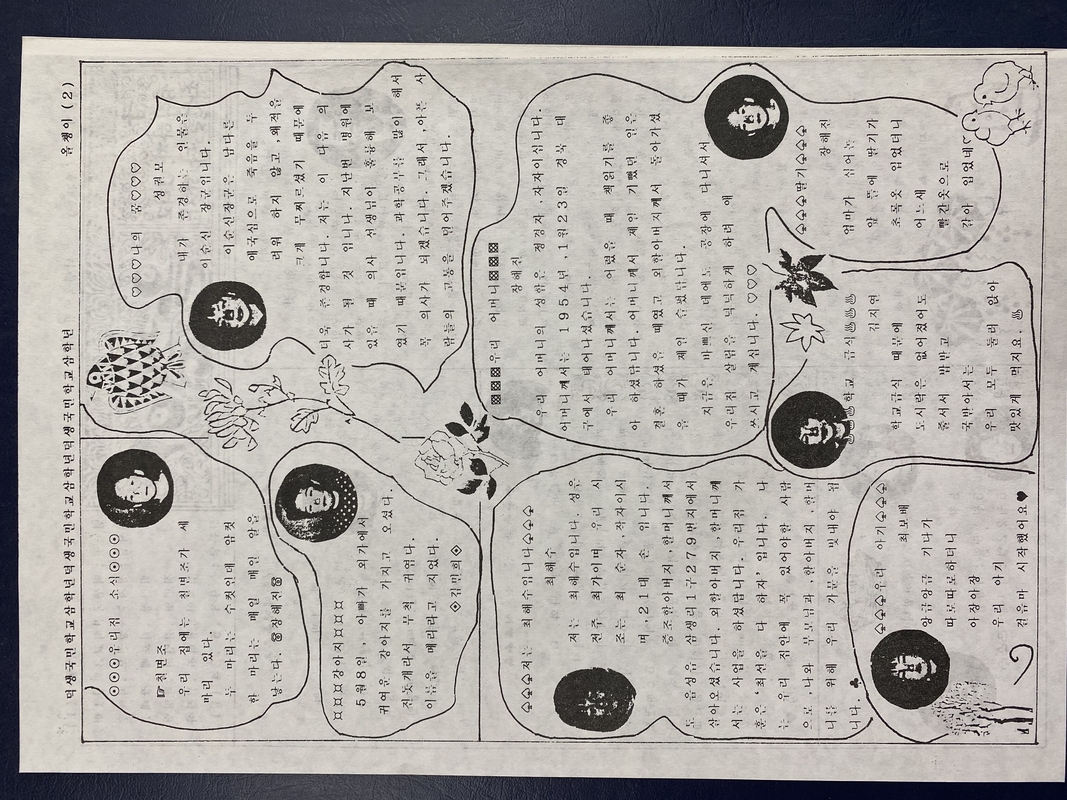 덕생국민학교삼학년덕생국민학교삼학년덕생국민학교삼학년 올챙이 (2)
⊙⊙⊙우리집 소식⊙⊙⊙
☞칠면조
우리 집에는 칠면조가 세
마리 있다.
두 마리는 수컷인데 암컷
한 마리는 매일 매일 알을
낳는다. 장해진
¤¤¤강아지¤¤¤
5월8일, 아빠가 외가에서
귀여운 강아지를 가지고 오셨다.
진돗개라서 무척 귀엽다.
이름을 메리라고 지었다.
◈김민희◈
♤♤저는 최해수입니다♤♤
최해수
저는 최해수입니다. 성은
전주 최가이며, 우리 시
조는 최 순자 ,작자이시
며 ,21대 손 입니다.
증조할아버지 ,할머니께서
도 음성읍 삼생리1구279번지에서
살아오셨습니다. 외할아버지 ,할머니께
서는 사업을 하셨답니다. 우리집 가
훈은 '최선을 다 하자' 입니다. 나
는 우리 집안에 꼭 있어야할 사람
으로 나와 부모님과 ,할아버지 ,할머
니를 위해 우리 가문을 빛내야 됩
니다. ♣
♤♤우리 아기♤♤
최보배
앙금앙금 기다가
따로따로하더니
아장아장
우리 아기
걸음마 시작했어요♥
♡♡♡나의 꿈♡♡♡
성원모
내가 존경하는 위물은
이순신 장군입니다.
이순신장군은 남다른
애국심으로 죽음을 두
려워 하지 않고 ,왜적을
크게 무찌르셨기 때문에
더욱 존경합니다. 저는 이 다음 의
사가 될 것 입니다. 지난번 병원에
있을 때 의사 선생님이 훌륭해 보
였기 때문입니다. 과학공부를 많이 해서
꼭 의사가 되겠습니다. 그래서 ,아픈 사
람들의 고통을 덜어주겠습니다.
▩▩▩▩우리 어머니▩▩▩▩
장해진
우리 어머니의 성함은 정경자 ,자자이십니다.
어머니께서는 1954년 ,1월23일 경북 대
구에서 태어나셨습니다.
우리 어머니께서는 어렸을 때 책읽기를 좋
아 하셨답니다. 어머니께서 제일 기뻤던 일은
결혼 하셨을 때였고 외할아버지께서 돌아가셨
을 때가 제일 슬펐답니다.
지금은 바쁘신 데에도 공장에 다니셔서
우리집 살림을 넉넉하게 하려 애
쓰시고 계십니다. ♡♡♡
♨♨학교 급식♨♨♨
김지연
학교급식 때문에
도시락은 없어졌어도
줄서서 밥받고
국받아서는
우리 모두 둘러 앉아
맛있게 먹지요. ♨
♤♤♤딸기♤♤♤
장해진
엄마가 심어놓은
앞 뜰에 딸기가
초록옷 입었더니
어느새
빨간옷으로
갈아 입었네♡